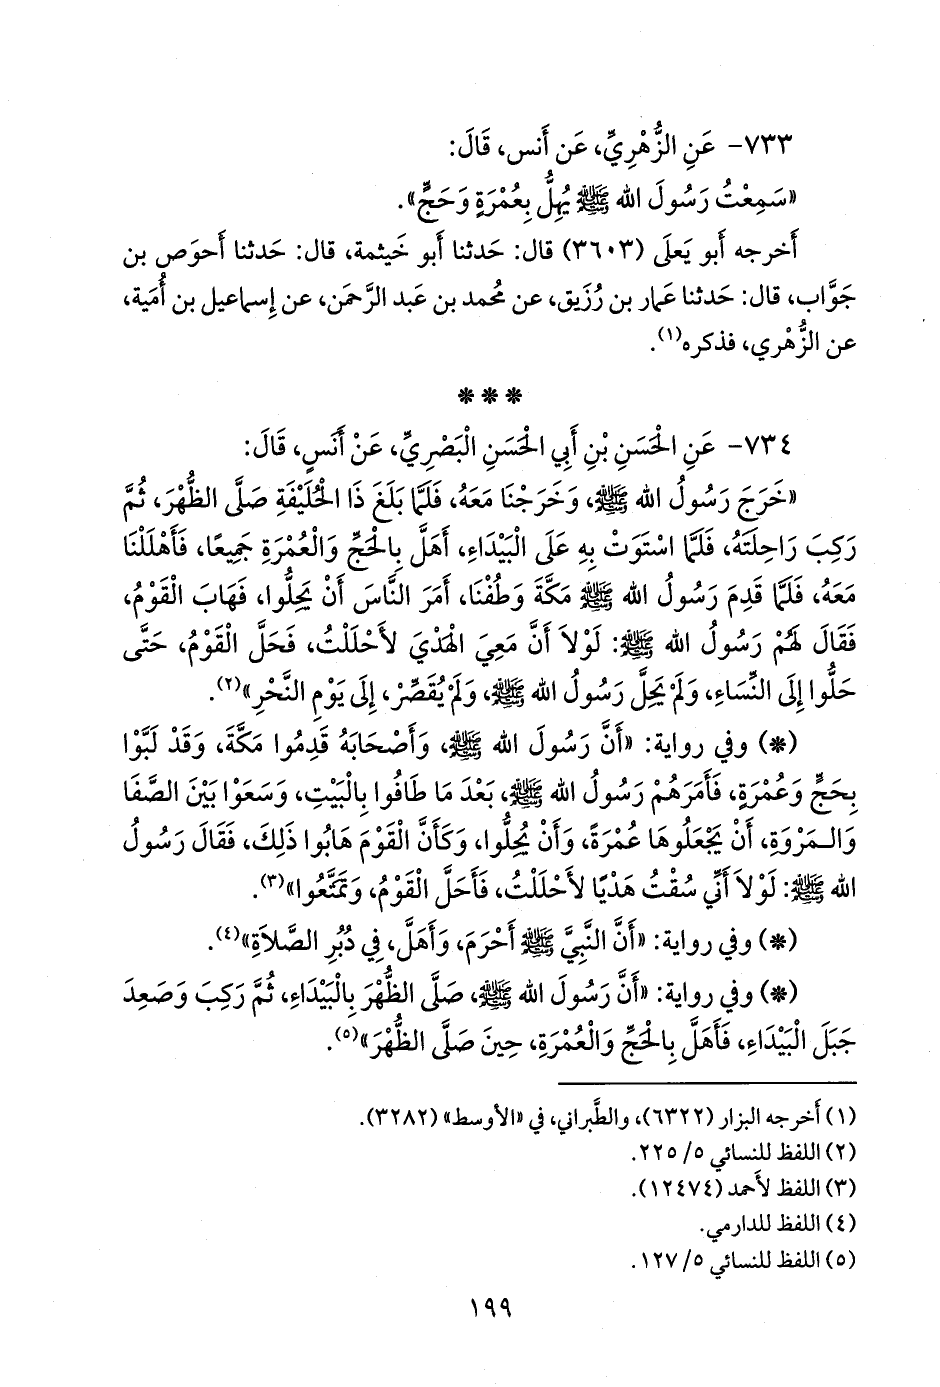 ٧٣٣- عَنِ الزُّهْرِيِّ، عَن أَنس، قَالَ:
«سَمِعْتُ رَسُولَ الله ﷺ يُهِلُّ بِعُمْرَةٍ وَحَجٍّ».
أَخرجه أَبو يَعلَى (٣٦٠٣) قال: حَدثنا أَبو خَيثمة، قال: حَدثنا أَحوَص بن
جَوَّاب، قال: حَدثنا عَمار بن رُزَيق، عن مُحمد بن عَبد الرَّحمَن، عن إِسماعيل بن أُمَية،
عن الزُّهْري، فذكره(١).
* * *
٧٣٤- عَنِ الْحَسَنِ بْنِ أَبِي الْحَسَنِ الْبَصْرِيِّ، عَنْ أَنَسٍ، قَالَ:
«خَرَجَ رَسُولُ الله ﷺ، وَخَرَجْنَا مَعَهُ، فَلَمَّا بَلَغَ ذَا الْحُلَيْفَةِ صَلَّى الظُّهْرَ، ثُمَّ
رَكِبَ رَاحِلَتَهُ، فَلَمَّا اسْتَوَتْ بِهِ عَلَى الْبَيْدَاءِ، أَهَلَّ بِالْحَجِّ وَالْعُمْرَةِ جَمِيعًا، فَأَهْلَلْنَا
مَعَهُ، فَلَمَّا قَدِمَ رَسُولُ الله ﷺ مَكَّةَ وَطُفْنَا، أَمَرَ النَّاسَ أَنْ يَحِلُّوا، فَهَابَ الْقَوْمُ،
فَقَالَ لَهُمْ رَسُولُ الله ﷺ: لَوْلاَ أَنَّ مَعِيَ الْهَدْيَ لأَحْلَلْتُ، فَحَلَّ الْقَوْمُ، حَتَّى
حَلُّوا إِلَى النِّسَاءِ، وَلَمْ يَحِلَّ رَسُولُ الله ﷺ، وَلَمْ يُقَصِّرْ، إِلَى يَوْمِ النَّحْرِ»(٢).
(*) وفي رواية: «أَنَّ رَسُولَ الله ﷺ، وَأَصْحَابَهُ قَدِمُوا مَكَّةَ، وَقَدْ لَبَّوْا
بِحَجٍّ وَعُمْرَةٍ، فَأَمَرَهُمْ رَسُولُ الله ﷺ، بَعْدَ مَا طَافُوا بِالْبَيْتِ، وَسَعَوْا بَيْنَ الصَّفَا
وَالـمَرْوَةِ، أَنْ يَجْعَلُوهَا عُمْرَةً، وَأَنْ يُحِلُّوا، وَكَأَنَّ الْقَوْمَ هَابُوا ذَلِكَ، فَقَالَ رَسُولُ
الله ﷺ: لَوْلاَ أَنِّي سُقْتُ هَدْيًا لأَحْلَلْتُ، فَأَحَلَّ الْقَوْمُ، وَتَمَتَّعُوا»(٣).
(*) وفي رواية: «أَنَّ النَّبِيَّ ﷺ أَحْرَمَ، وَأَهَلَّ، فِي دُبُرِ الصَّلاَةِ»(٤).
(*) وفي رواية: «أَنَّ رَسُولَ الله ﷺ، صَلَّى الظُّهْرَ بِالْبَيْدَاءِ، ثُمَّ رَكِبَ وَصَعِدَ
جَبَلَ الْبَيْدَاءِ، فَأَهَلَّ بِالْحَجِّ وَالْعُمْرَةِ، حِينَ صَلَّى الظُّهْرَ»(٥).
(١) أَخرجه البزار (٦٣٢٢)، والطَّبراني، في «الأَوسط» (٣٢٨٢).
(٢) اللفظ للنسائي ٥/ ٢٢٥.
(٣) اللفظ لأَحمد (١٢٤٧٤).
(٤) اللفظ للدارمي.
(٥) اللفظ للنسائي ٥/ ١٢٧.
١٩٩